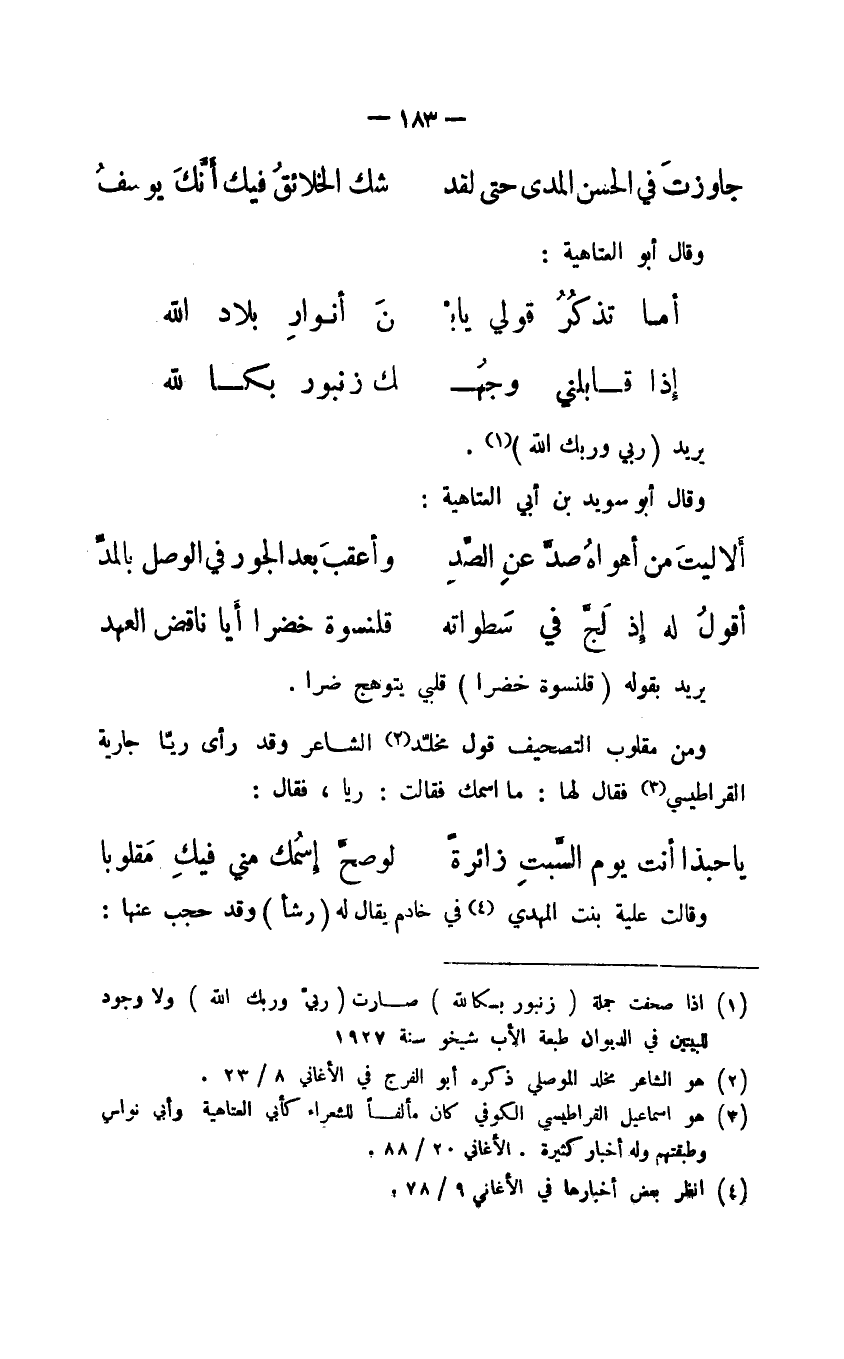 — ١٨٣ —
جاوزتَ في الحسن المدى حتى لقد شك الخلائقُ فيك أنَّكَ يوسفُ
وقال أبو العتاهية :
أما تذكُرُ قولي يابْ نَ أنوارِ بلاد الله
إذا قــابلني وجهُــ ك زنبور بكــا لله
يريد ( ربي وربك الله )(١) .
وقال أبو سويد بن أبي العتاهية :
أَلا ليتَ من أهواهُ صدَّ عنِ الصَّدِ وأعقبَ بعد الجور في الوصل بالمدِّ
أقولُ له إذ لَجَّ في سَطواته قلنسوة خضرا أَيا ناقض العهد
يريد بقوله ( قلنسوة خضرا ) قلبي يتوهج ضرا .
ومن مقلوب التصحيف قول مخلّد(٢) الشاعر وقد رأى ريّا جارية
القراطيسي(٣) فقال لها : ما اسمك فقالت : ريا ، فقال :
ياحبذا أنت يوم السَّبتِ زائرةً لوصحَّ إسمُك مني فيكِ مَقلوبا
وقالت علية بنت المهدي (٤) في خادم يقال له ( رشأ ) وقد حجب عنها :
(١) اذا صحفت جملة ( زنبور بـكالله ) صــارت ( ربيْ وربك الله ) ولا وجود
للبيتين في الديوان طبعة الأب شيخو سنة ١٩٢٧
(٢) هو الشاعر مخلد الموصلي ذكره أبو الفرج في الأغاني ٨ / ٢٣ .
(٣) هو اسماعيل القراطيسي الكوفي كان مألفــاً للشعراء كأبي العتاهية وأبي نواس
وطبقتهم وله أخبار كثيرة . الأغاني ٢٠ / ٨٨ .
(٤) انظر بعض أخبارها في الأغاني ٩ / ٧٨ .